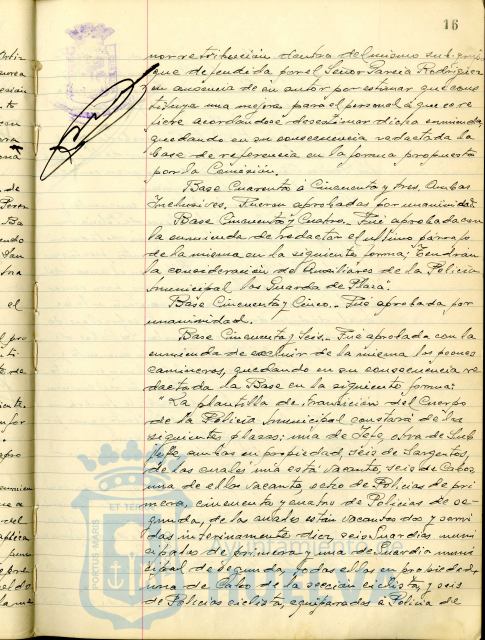 16
nor retribución dentro del mismo sub-grupo
que defendida por el Señor García Rodríguez
en ausencia de su autor por estimar que cons-
tituye una mejora para el personal á que se re
fiere acordándose desestimar dicha enmienda
quedando en su consecuencia redactada la
base de referencia en la forma propuesta
por la Comisión.
Base Cuarenta á Cincuenta y tres. Ambas
Inclusives. Fueron aprobadas por unanimidad.
Base Cincuenta y Cuatro. Fué aprobada con
la enmienda de redactar el último párrafo
de la misma en la siguiente forma; "Tendrán
la consideración de Auxiliares de la Policía
Municipal los Guarda de Plaza".
Base Cincuenta y Cinco. Fué aprobada por
unanimidad.
Base Cincuenta y Seis. Fué aprobada con la
enmienda de excluir de la misma los peones
camineros, quedando en su consecuencia re
dactada la Base en la siguiente forma:
"La plantilla de transición del Cuerpo
de la Policía Municipal constará de las
siguientes plazas; una de Jefe, otra de Sub
Jefe, ambas en propiedad, seis de Sargentos,
de las cuales una está vacante, seis de Cabos
una de ellas vacante, ocho de Policías de pri
mera, cincuenta y cuatro de Policías de se-
gunda, de las cuales están vacantes dos y servi
das interinamente diez, seis Guardias muni
cipales de primera y una de Guardia muni
cipal de segunda, todas ellas en propiedad;
una de Cabo de la sección ciclista, y seis
de Policías ciclistas, equiparados á Policía de
PORTUS MARIS
ET TERRAE
Ayuntamiento de